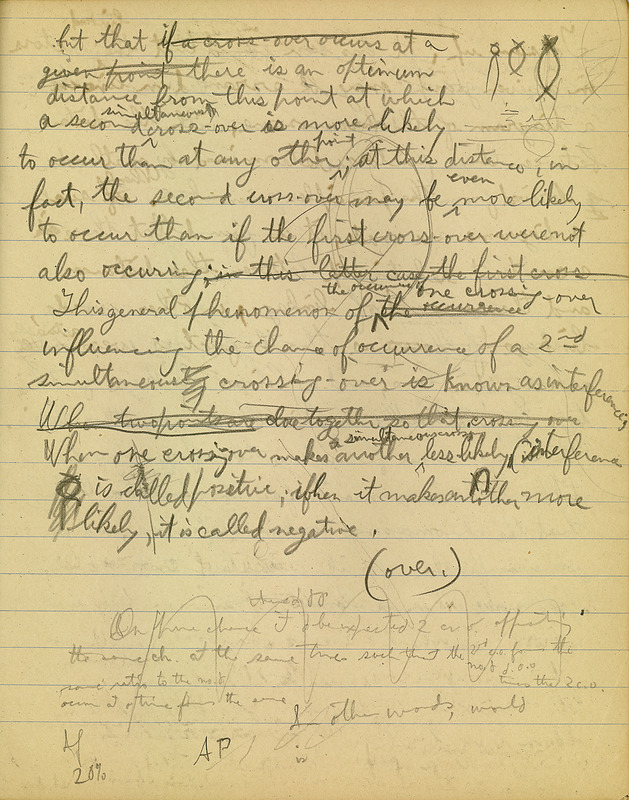 but that if a cross-over occurs at a
given point there is an optimum
distance from this point at which
simultaneous
a second cross-over is more likely
point
to occur than at any other; at this distance, in
even
fact, the second cross-over may be more likely
to occur than if the first cross-over were not
also occuring; in this latter case, the first cross
the occurrence one crossing-over
This general phenomenon of the occurrence
influencing the chance of occurrence of a 2nd
simultaneous crossing-over is known as interference
When two points are close together so that crossing over
a simultaneous
When one crossing over makes another less likely, interference
is called positive; when it makes another more
likely, it is called negative.
(over.)
On pure chance to be expected 2 cr. o. affecting
the same ch. at the same time such that the 2nd c.o. from the
times the 2 c.o.
ratio to the
occur at from the same
In other words, would
20%
AP